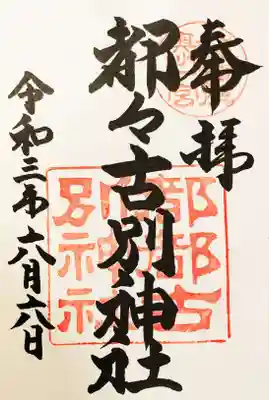 奉拝
都々古別神社
令和三年六月六日
都都古
別神社